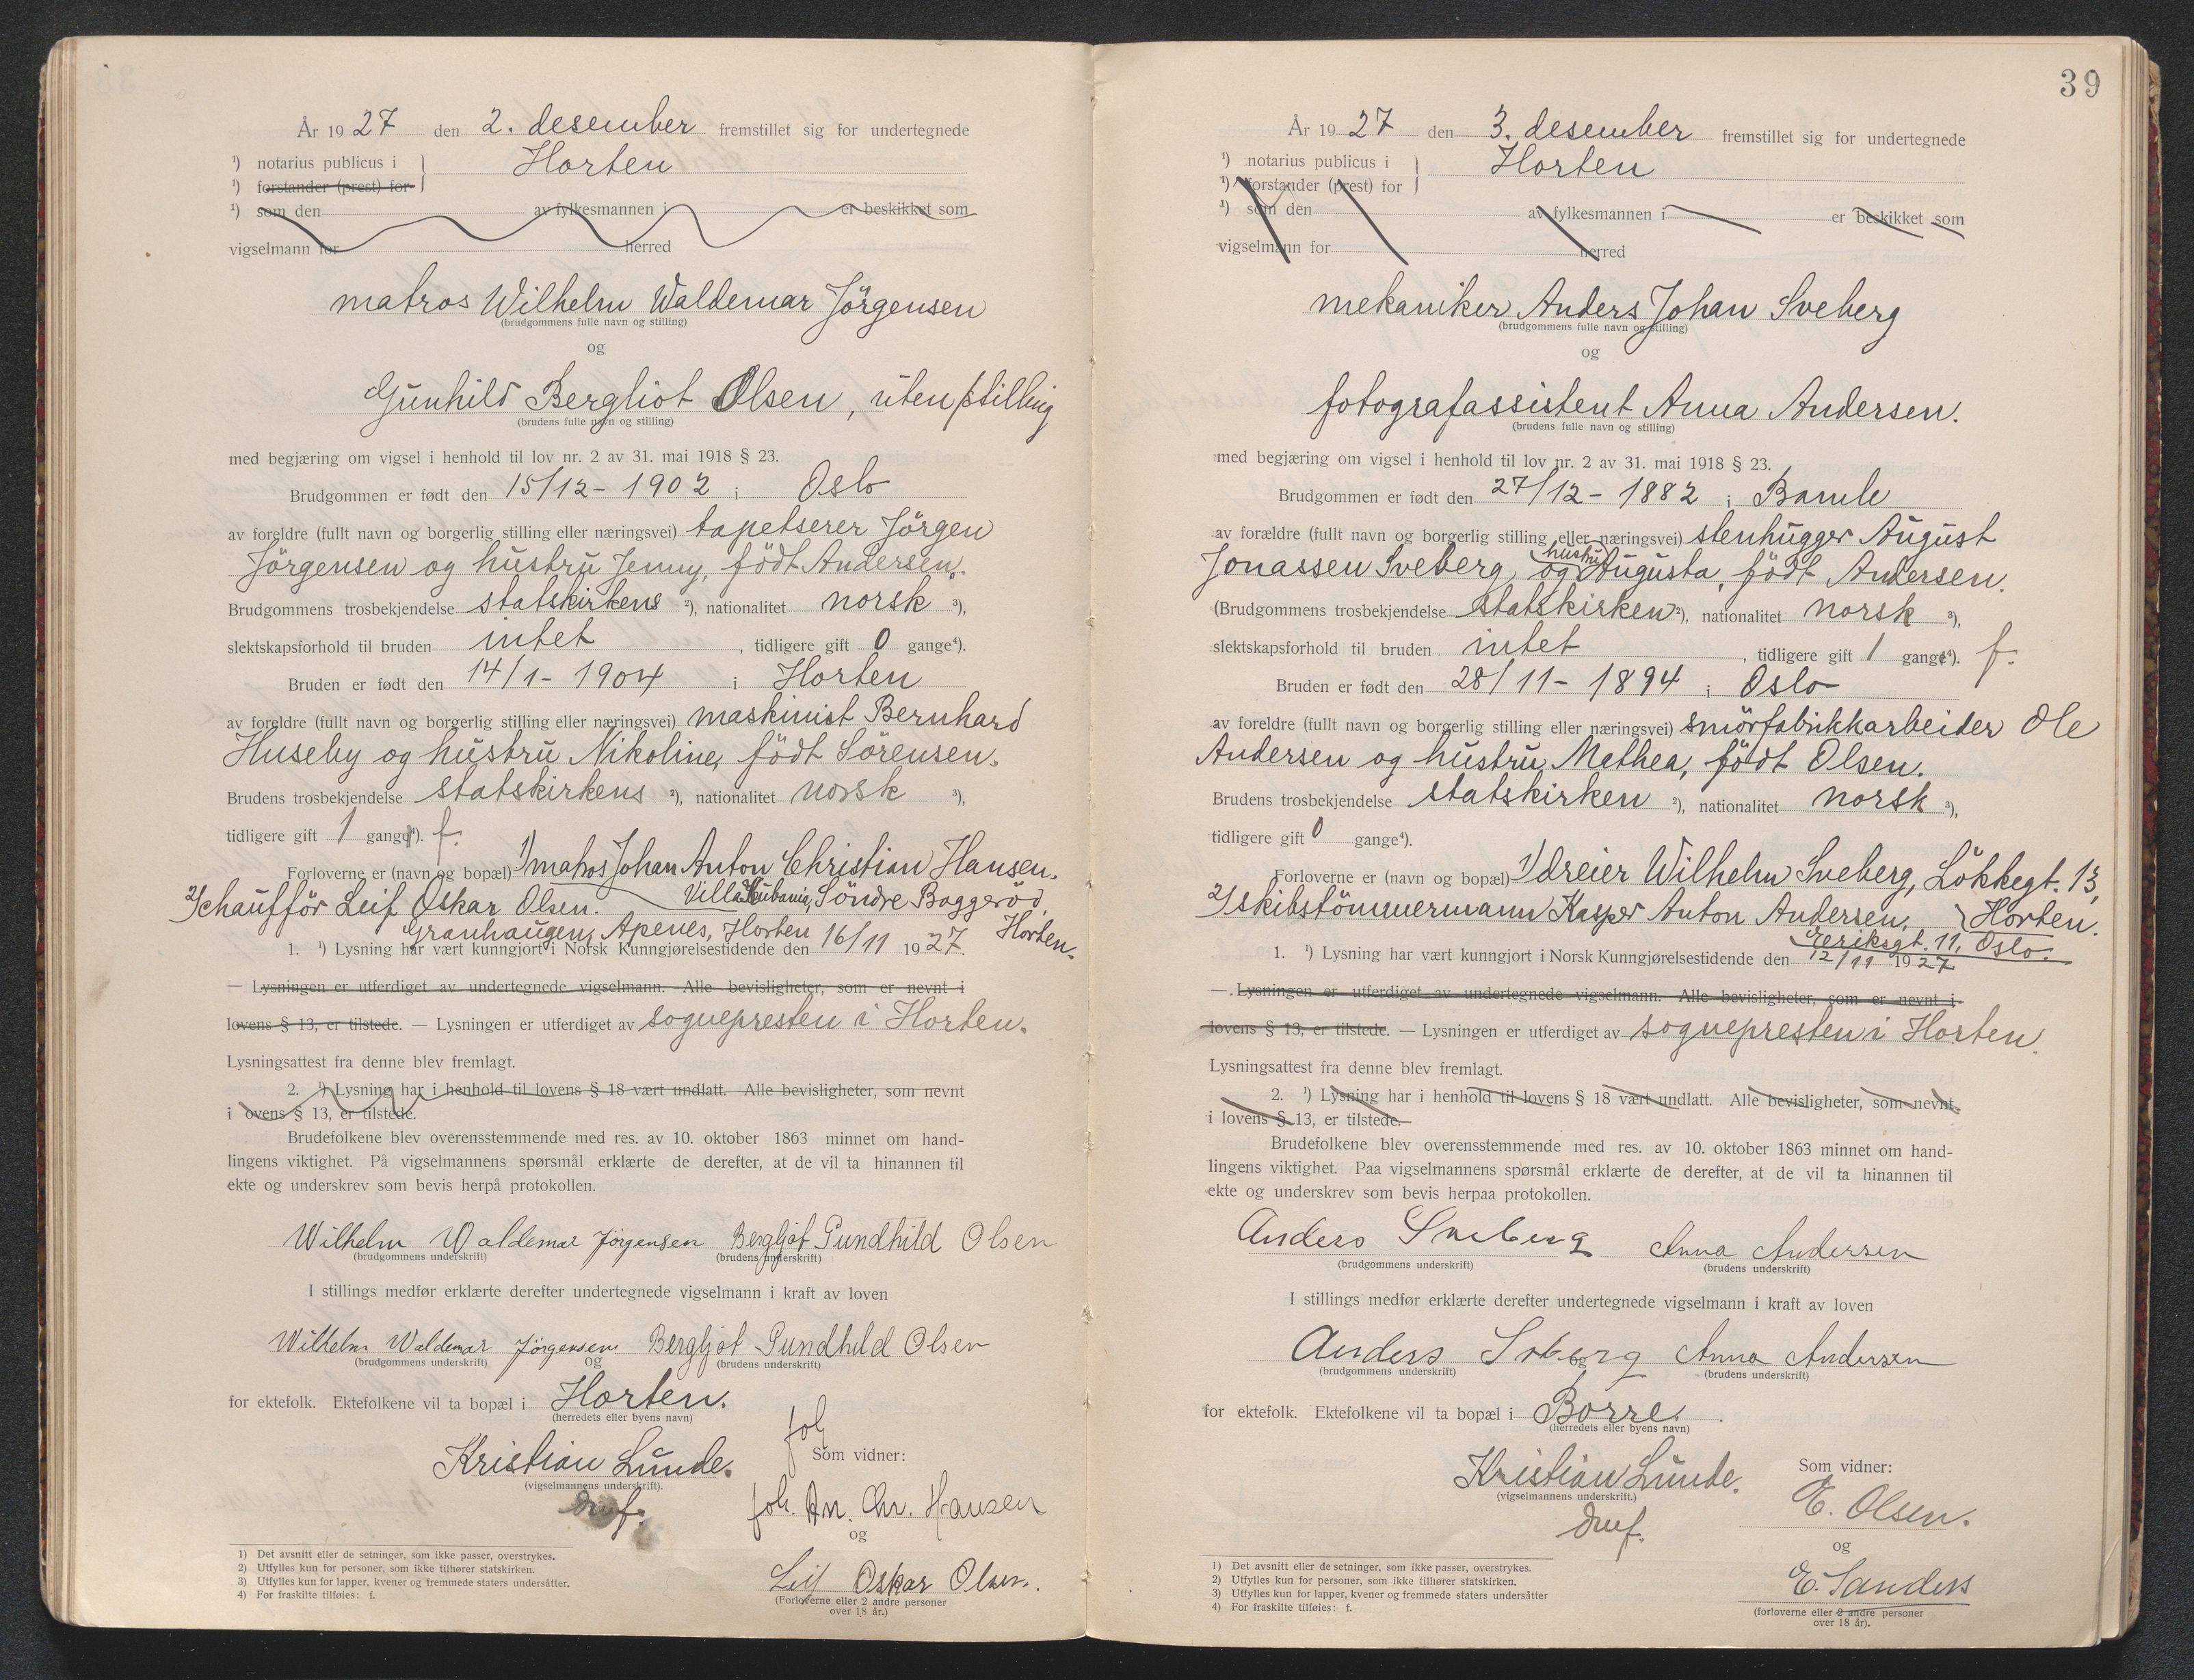 År 19 27 den 2. desember fremstillet sig for undertegnede
¹) notarius publicus i Horten
¹) forstander (prest) for
¹) som den av fylkesmannen i er beskikket som
vigselmann for herred
matros Wilhelm Waldemar Jörgensen
(brudgommens fulle navn og stilling)
og
Gunhild Bergliot Olsen, uten stilling
(brudens fulle navn og stilling)
med begjæring om vigsel i henhold til lov nr. 2 av 31. mai 1918 § 23.
Brudgommen er født den 15/12 - 1902 i Oslo
av foreldre (fullt navn og borgerlig stilling eller næringsvei) tapetserer Jörgen
Jörgensen og hustru Jenny, födt Andersen.
Brudgommens trosbekjendelse statskirkens ²), nationalitet norsk ³),
slektskapsforhold til bruden intet , tidligere gift 0 gange⁴).
Bruden er født den 14/1 - 1904 i Horten
av foreldre (fullt navn og borgerlig stilling eller næringsvei) maskinist Bernhard
Huseby og hustru Nikoline, födt Sörensen.
Brudens trosbekjendelse statskirkens ²), nationalitet norsk ³),
tidligere gift 1 gange⁴). f.
Forloverne er (navn og bopæl) 1) matros Johan Anton Christian Hansen.
2) chaufför Leif Oskar Olsen. Villa Söndre Baggeröd,
Granhaugen, Apenes, Horten Horten.
1. ¹) Lysning har vært kunngjort i Norsk Kunngjørelsestidende den 16/11 19 27.
— Lysningen er utferdiget av undertegnede vigselmann. Alle bevisligheter, som er nevnt i
lovens § 13, er tilstede. — Lysningen er utferdiget av sognepresten i Horten.
Lysningsattest fra denne blev fremlagt.
2. ¹) Lysning har i henhold til lovens § 18 vært undlatt. Alle bevisligheter, som nevnt
i ovens § 13, er tilstede.
Brudefolkene blev overensstemmende med res. av 10. oktober 1863 minnet om hand-
lingens viktighet. På vigselmannens spørsmål erklærte de derefter, at de vil ta hinannen til
ekte og underskrev som bevis herpå protokollen.
Wilhelm Waldemar Jörgensen Bergljot Gundhild Olsen
(brudgommens underskrift) (brudens underskrift)
I stillings medfør erklærte derefter undertegnede vigselmann i kraft av loven
Wilhelm Waldemar Jörgensen Bergljot Gundhild Olsen
(brudgommens underskrift) og (brudens underskrift)
for ektefolk. Ektefolkene vil ta bopæl i Horten.
(herredets eller byens navn)
Joh
Kristian Lunde. Som vidner:
(vigselmannens underskrift).
dmf. Joh. An. Chr. Hansen
og
Leif Oskar Olsen.
(Forloverne eller 2 andre personer
over 18 år.)
1) Det avsnitt eller de setninger, som ikke passer, overstrykes.
2) Utfylles kun for personer, som ikke tilhører statskirken.
3) Utfylles kun for lapper, kvener og fremmede staters undersåtter.
4) For fraskilte tilføies: f.
39
År 19 27 den 3. desember fremstillet sig for undertegnede
¹) notarius publicus i Horten
¹) forstander (prest) for
¹) som den av fylkesmannen i er beskikket som
vigselmann for herred
mekaniker Anders Johan Sveberg
(brudgommens fulle navn og stilling)
og
fotografassistent Anna Andersen.
(brudens fulle navn og stilling)
med begjæring om vigsel i henhold til lov nr. 2 av 31. mai 1918 § 23.
Brudgommen er født den 27/12 - 1882 i Bamle
av forældre (fullt navn og borgerlig stilling eller næringsvei) stenhugger August
Jonassen Sveberg, og hustru Augusta, födt Andersen.
(Brudgommens trosbekjendelse statskirken ²), nationalitet norsk ³),
slektskapsforhold til bruden intet , tidligere gift 1 gange⁴). f.
Bruden er født den 28/11 - 1894 i Oslo
av foreldre (fullt navn og borgerlig stilling eller næringsvei) smörfabrikkarbeider Ole
Andersen og hustru Mathea, födt Olsen.
Brudens trosbekjendelse statskirken ²), nationalitet norsk ³),
tidligere gift 0 gange⁴).
Forloverne er (navn og bopæl) 1) dreier Wilhelm Sveberg, Lökkegt. 13,
2) skibstömmermann Kasper Anton Andersen, Horten.
Eriksgt. 11, Oslo.
1. ¹) Lysning har vært kunngjort i Norsk Kunngjørelsestidende den 12/11 19 27
—. Lysningen er utferdiget av undertegnede vigselmann. Alle bevisligheter, som er nevnt i
lovens § 13, er tilstede. — Lysningen er utferdiget av sognepresten i Horten.
Lysningsattest fra denne blev fremlagt.
2. ¹) Lysning har i henhold til lovens § 18 vært undlatt. Alle bevisligheter, som nevnt
i lovens § 13, er tilstede.
Brudefolkene blev overensstemmende med res. av 10. oktober 1863 minnet om hand-
lingens viktighet. Paa vigselmannens spørsmål erklærte de derefter, at de vil ta hinannen til
ekte og underskrev som bevis herpaa protokollen.
Anders Sveberg Anna Andersen
(brudgommens underskrift) (brudens underskrift)
I stillings medfør erklærte derefter undertegnede vigselmann i kraft av loven
Anders Sveberg og Anna Andersen
(brudgommens underskrift) (brudens underskrift)
for ektefolk. Ektefolkene vil ta bopæl i Borre.
(herredets eller byens navn)
Kristian Lunde. Som vidner:
(vigselmannens underskrift.)
dmf. E. Olsen.
og
E. Sanders
(forloverne eller 2 andre personer
over 18 år).
1) Det avsnitt eller de setninger, som ikke passer, overstrykes.
2) Utfylles kun for personer, som ikke tilhører statskirken.
3) Utfylles kun for lapper, kvener og fremmede staters undersåtter
4) For fraskilte tilføies: f.